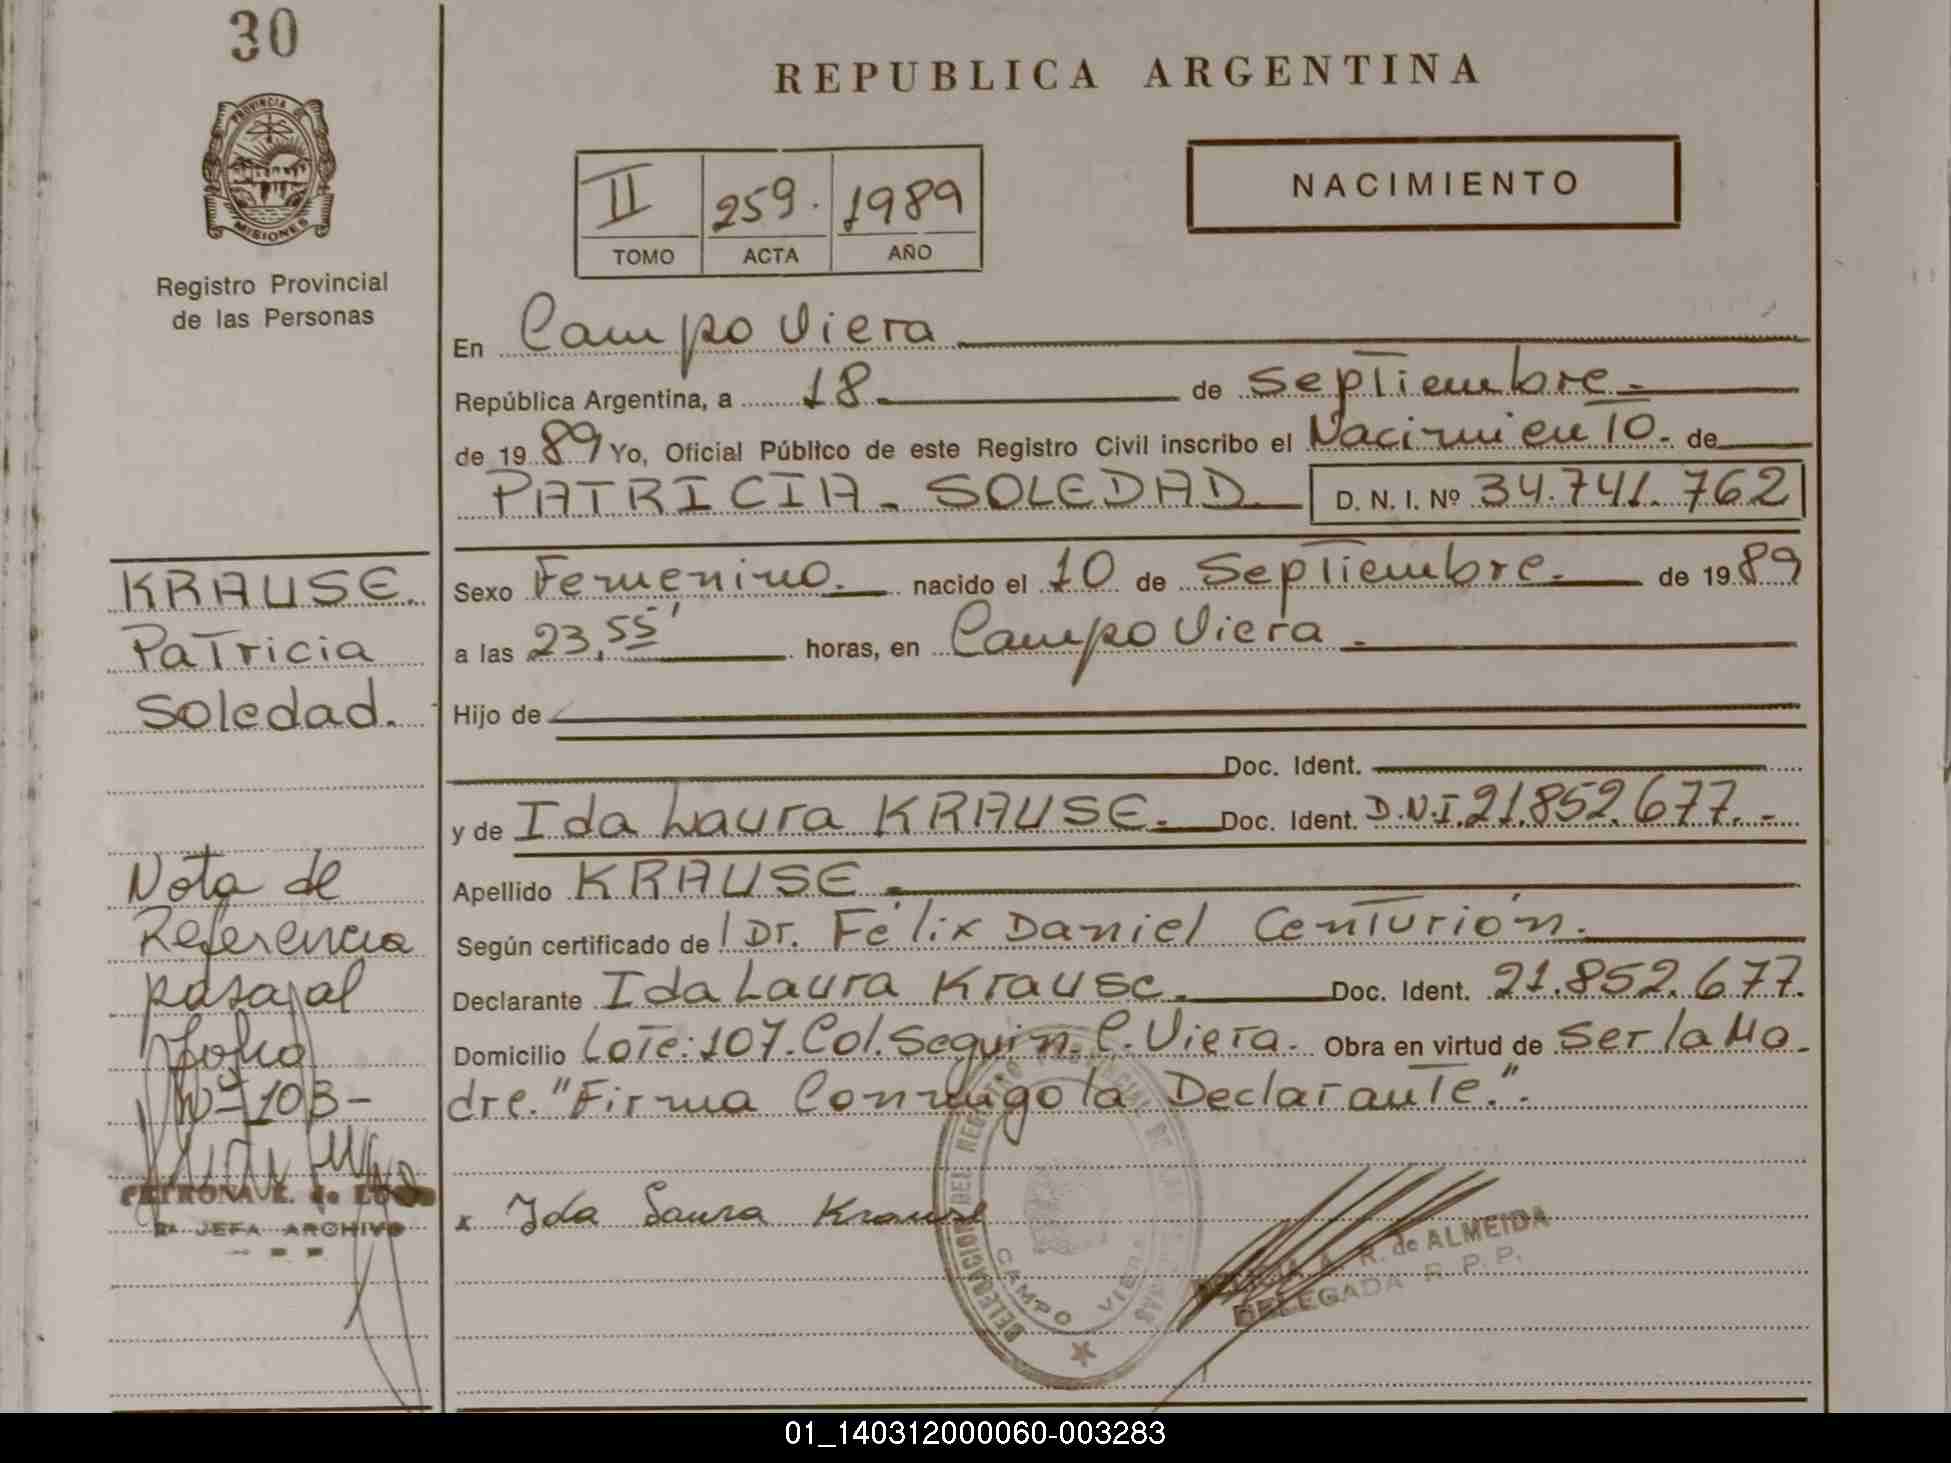 30
REPUBLICA ARGENTINA
PROVINCIA DE
MISIONES
Registro Provincial
de las Personas
II 259. 1989
TOMO ACTA AÑO
NACIMIENTO
En Campo Viera
República Argentina, a 18 de Septiembre.
de 1989 Yo, Oficial Público de este Registro Civil inscribo el Nacimiento. de
PATRICIA - SOLEDAD D. N. I. Nº 34.741.762
KRAUSE.
Patricia
Soledad.
Sexo Femenino. nacido el 10 de Septiembre. de 1989
a las 23,55' horas, en Campo Viera.
Hijo de
Doc. Ident.
y de Ida Laura KRAUSE. Doc. Ident. D.N.I.21.852.677.-
Apellido KRAUSE.
Según certificado de Dr. Félix Daniel Centurión.
Declarante Ida Laura Krause. Doc. Ident. 21.852.677.
Domicilio Lote:107.Col.Seguin.C.Viera. Obra en virtud de Ser la Ma-
dre."Firma Conmigo la Declarante".
Nota de
Referencia
pasa al
folio
Nº 103-
PETRONA E. de
2ª JEFA ARCHIVO
x Ida Laura Krause
DELEGACION DEL REGISTRO PROVINCIAL DE LAS
CAMPO VIERA
A. R. de ALMEIDA
DELEGADA R. P. P.
01_140312000060-003283